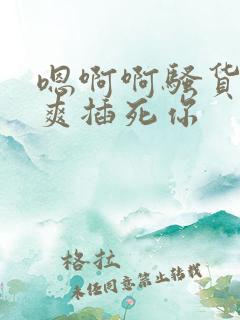 嗯啊啊骚货
爽插死你
格拉
未经同意禁止转载